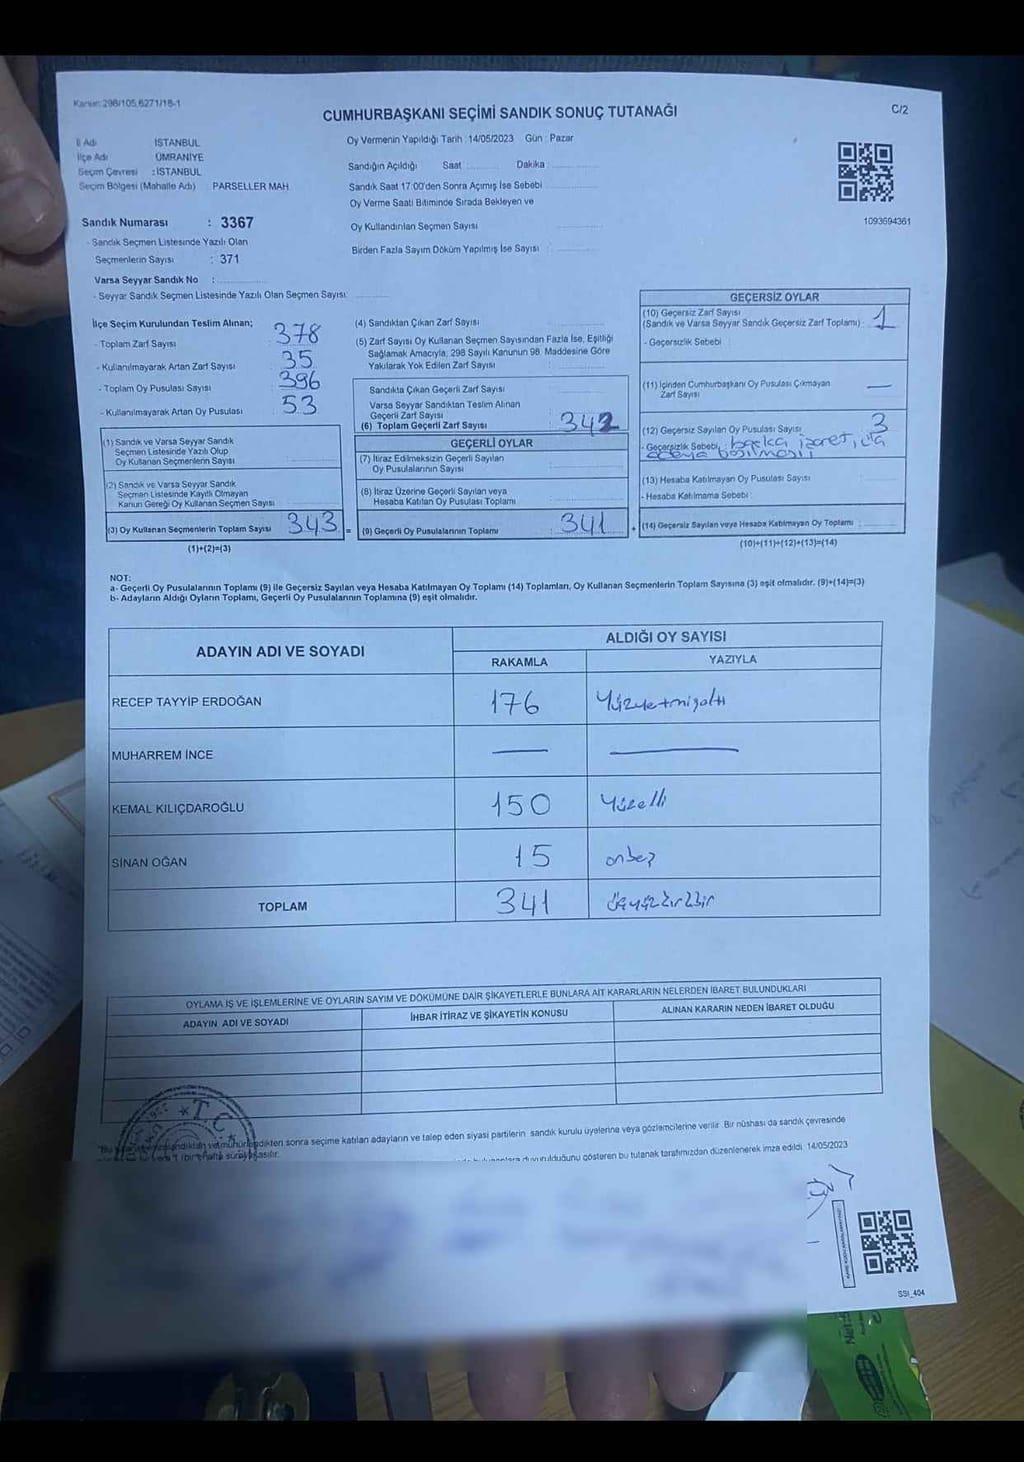 Kanun: 298/105,6271/18-1
C/2
CUMHURBAŞKANI SEÇİMİ SANDIK SONUÇ TUTANAĞI
İl Adı İSTANBUL
İlçe Adı ÜMRANİYE
Seçim Çevresi : İSTANBUL
Seçim Bölgesi (Mahalle Adı) : PARSELLER MAH.
Sandık Numarası : 3367
- Sandık Seçmen Listesinde Yazılı Olan
Seçmenlerin Sayısı : 371
Varsa Seyyar Sandık No :
- Seyyar Sandık Seçmen Listesinde Yazılı Olan Seçmen Sayısı:
Oy Vermenin Yapıldığı Tarih : 14/05/2023 Gün : Pazar
Sandığın Açıldığı Saat Dakika
Sandık Saat 17:00'den Sonra Açımış İse Sebebi
Oy Verme Saati Bitiminde Sırada Bekleyen ve
Oy Kullandırılan Seçmen Sayısı
Birden Fazla Sayım Döküm Yapılmış İse Sayısı
1093694361
İlçe Seçim Kurulundan Teslim Alınan;
- Toplam Zarf Sayısı 378
- Kullanılmayarak Artan Zarf Sayısı 35
- Toplam Oy Pusulası Sayısı 396
- Kullanılmayarak Artan Oy Pusulası 53
(1) Sandık ve Varsa Seyyar Sandık
Seçmen Listesinde Yazılı Olup
Oy Kullanan Seçmenlerin Sayısı
(2) Sandık ve Varsa Seyyar Sandık
Seçmen Listesinde Kayıtlı Olmayan
Kanun Gereği Oy Kullanan Seçmen Sayısı
(3) Oy Kullanan Seçmenlerin Toplam Sayısı 343 =
(1)+(2)=(3)
(4) Sandıktan Çıkan Zarf Sayısı
(5) Zarf Sayısı Oy Kullanan Seçmen Sayısından Fazla İse, Eşitliği
Sağlamak Amacıyla, 298 Sayılı Kanunun 98. Maddesine Göre
Yakılarak Yok Edilen Zarf Sayısı
Sandıkta Çıkan Geçerli Zarf Sayısı
Varsa Seyyar Sandıktan Teslim Alınan
Geçerli Zarf Sayısı
(6) Toplam Geçerli Zarf Sayısı 342
GEÇERLİ OYLAR
(7) İtiraz Edilmeksizin Geçerli Sayılan
Oy Pusulalarının Sayısı
(8) İtiraz Üzerine Geçerli Sayılan veya
Hesaba Katılan Oy Pusulası Toplamı
(9) Geçerli Oy Pusulalarının Toplamı 341 +
GEÇERSİZ OYLAR
(10) Geçersiz Zarf Sayısı
(Sandık ve Varsa Seyyar Sandık Geçersiz Zarf Toplamı) : 1
- Geçersizlik Sebebi :
(11) İçinden Cumhurbaşkanı Oy Pusulası Çıkmayan
Zarf Sayısı —
(12) Geçersiz Sayılan Oy Pusulası Sayısı 3
- Geçersizlik Sebebi : başka işaret, iki
adaya basılması
(13) Hesaba Katılmayan Oy Pusulası Sayısı
- Hesaba Katılmama Sebebi :
(14) Geçersiz Sayılan veya Hesaba Katılmayan Oy Toplamı
(10)+(11)+(12)+(13)=(14)
NOT:
a- Geçerli Oy Pusulalarının Toplamı (9) ile Geçersiz Sayılan veya Hesaba Katılmayan Oy Toplamı (14) Toplamları, Oy Kullanan Seçmenlerin Toplam Sayısına (3) eşit olmalıdır. (9)+(14)=(3)
b- Adayların Aldığı Oyların Toplamı, Geçerli Oy Pusulalarının Toplamına (9) eşit olmalıdır.
ADAYIN ADI VE SOYADI
ALDIĞI OY SAYISI
RAKAMLA YAZIYLA
RECEP TAYYİP ERDOĞAN 176 Yüzyetmişaltı
MUHARREM İNCE — —
KEMAL KILIÇDAROĞLU 150 Yüzelli
SİNAN OĞAN 15 onbeş
TOPLAM 341 üçyüzkırkbir
OYLAMA İŞ VE İŞLEMLERİNE VE OYLARIN SAYIM VE DÖKÜMÜNE DAİR ŞİKAYETLERLE BUNLARA AİT KARARLARIN NELERDEN İBARET BULUNDUKLARI
ADAYIN ADI VE SOYADI İHBAR İTİRAZ VE ŞİKAYETİN KONUSU ALINAN KARARIN NEDEN İBARET OLDUĞU
T.C.
sonra seçime katılan adayların ve talep eden siyasi partilerin sandık kurulu üyelerine veya gözlemcilerine verilir. Bir nüshası da sandık çevresinde
duyurulduğunu gösteren bu tutanak tarafımızdan düzenlenerek imza edildi. 14/05/2023
SSI_404